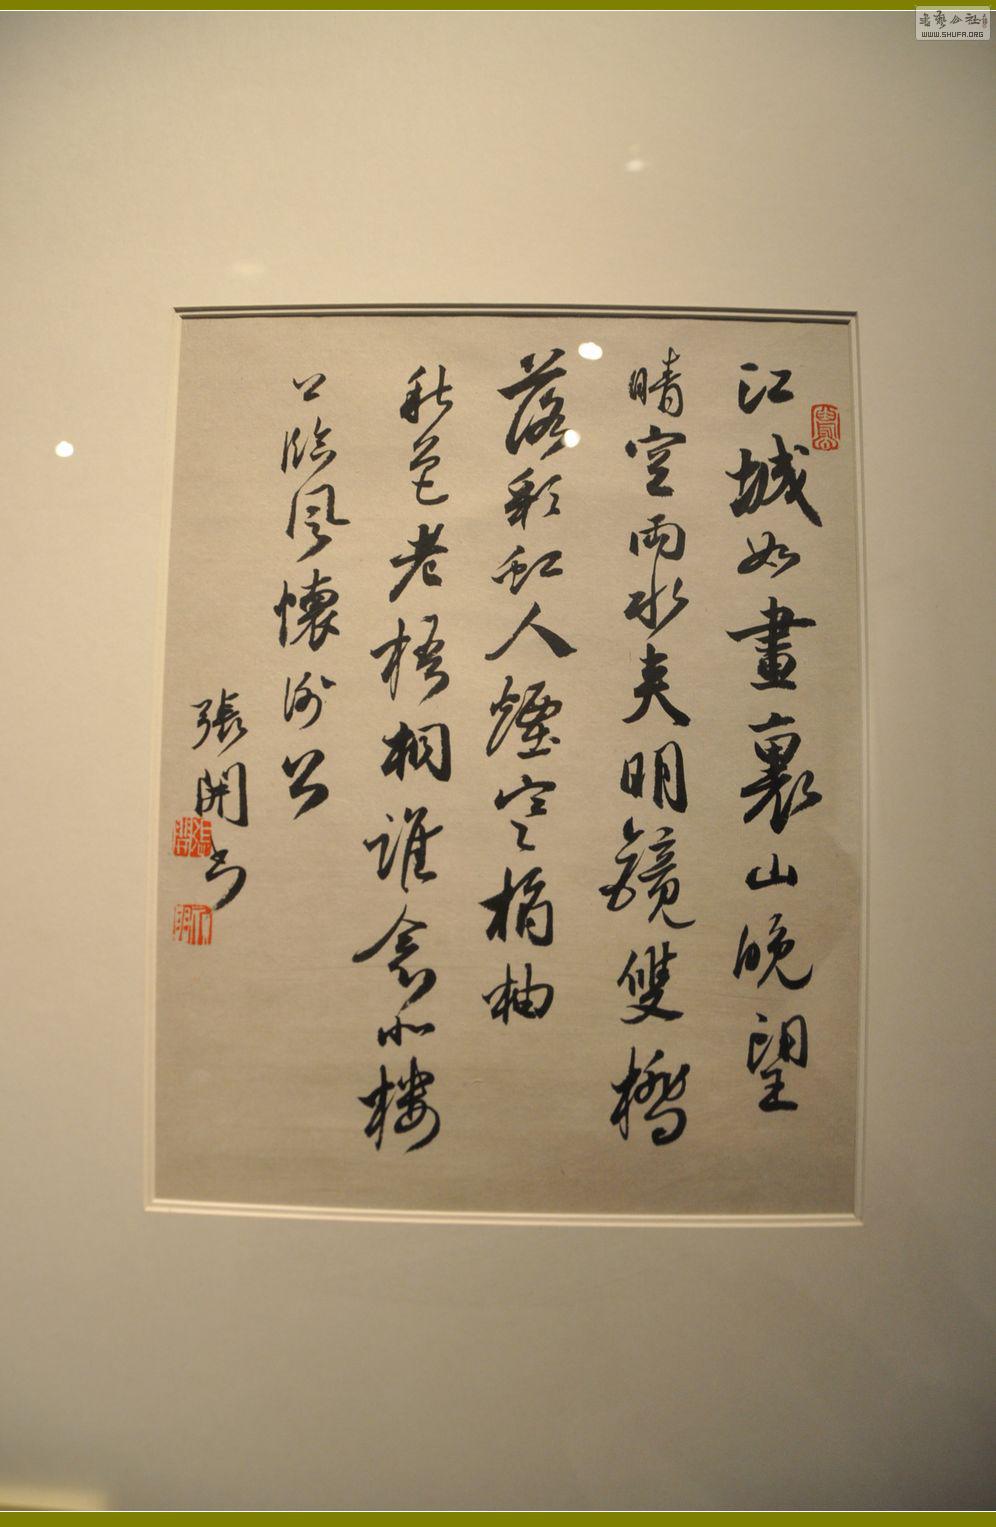 江城如畫裏山晚望
晴空兩水夾明鏡雙橋
落彩虹人煙寒橘柚
秋色老梧桐誰念北樓
上臨風懷謝公
張開書
書藝公社
WWW.SHUFA.ORG